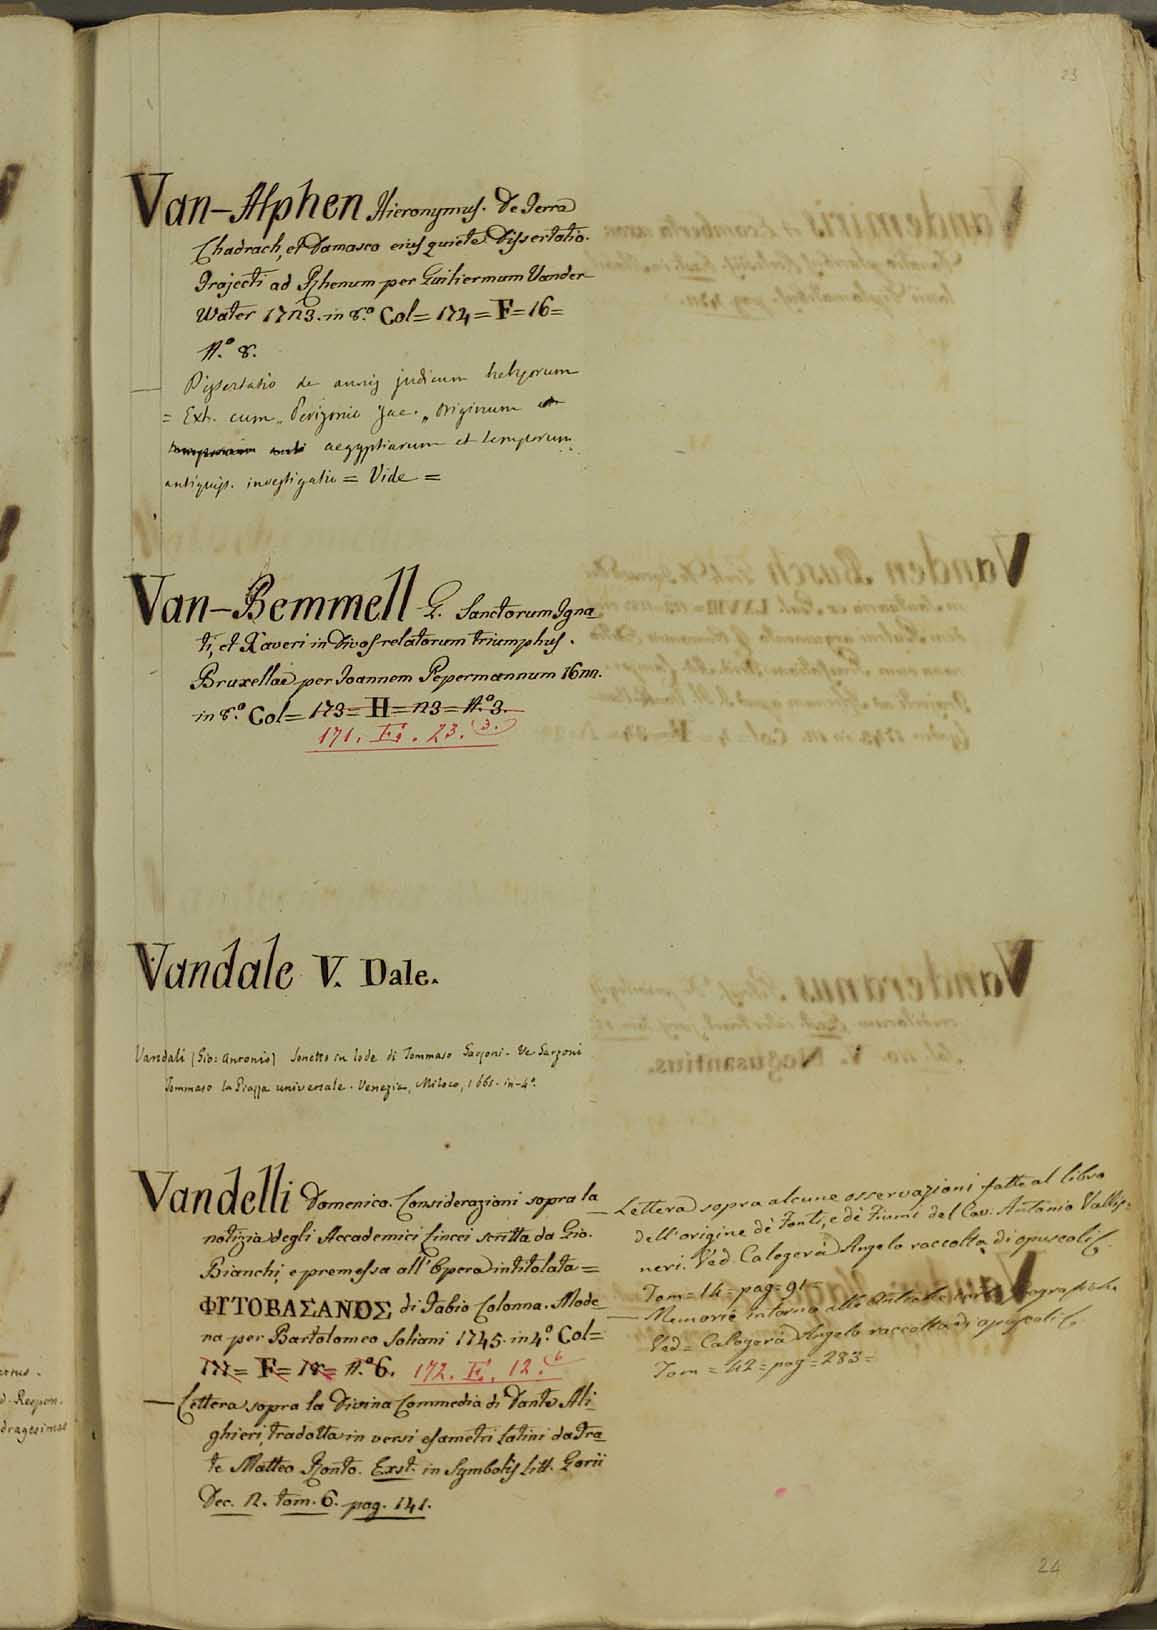 23
Van-Alphen Hieronymus. De Terra
Chadrach, et Damasco eius quiete Dissertatio.
Trajecti ad Rhenum per Guiliermum Vander
Water 1723. in 8.º Col= 174= F= 16=
N.º 8.
— Dissertatio de annis judicum hebreorum
= Ext. cum „ Perizonio Jac. „ Originum
aegyptiarum et temporum
antiquiss. investigatio = Vide =
Van-Bemmell G. Sanctorum Igna
ti, et Xaveri in Divos relatorum triumphus.
Bruxellae per Joannem Pepermannum 1622.
in 8.º Col= 173= H= 23= N.º 3.
171. E. 23. (3.
Vandale V. Dale.
Vandali (Gio: Antonio) Sonetto in lode di Tommaso Garzoni. Ve Garzoni
Tommaso la Piazza universale. Venezia, Miloco, 1665. in-4º.
Vandelli Domenico. Considerazioni sopra la
notizia degli Accademici Lincei scritta da Gio.
Bianchi, e premessa all' Opera intitolata=
ΦΥΤΟΒΑΣΑΝΟΣ di Fabio Colonna. Mode
na per Bartolomeo Soliani 1745. in 4.º Col=
F= N.º 6. 172. E. 12. 6
— Lettera sopra la Divina Commedia di Dante Ali
ghieri, tradotta in versi esametri Latini da Fra
te Matteo Ronto. Exst. in Symbolis Litt. Gorii
Dec. 2. tom. 6. pag. 141.
— Lettera sopra alcune osservazioni fatte al libro
dell' origine de' Fonti, e de' Fiumi del Cav. Antonio Vallis=
neri. Ved. Calogerà Angelo raccolta di opuscoli
Tom= 14= pag= 91=
— Memorie intorno alle
Ved= Calogerà Angelo raccolta di opuscoli
Tom= 42= pag= 283=
24